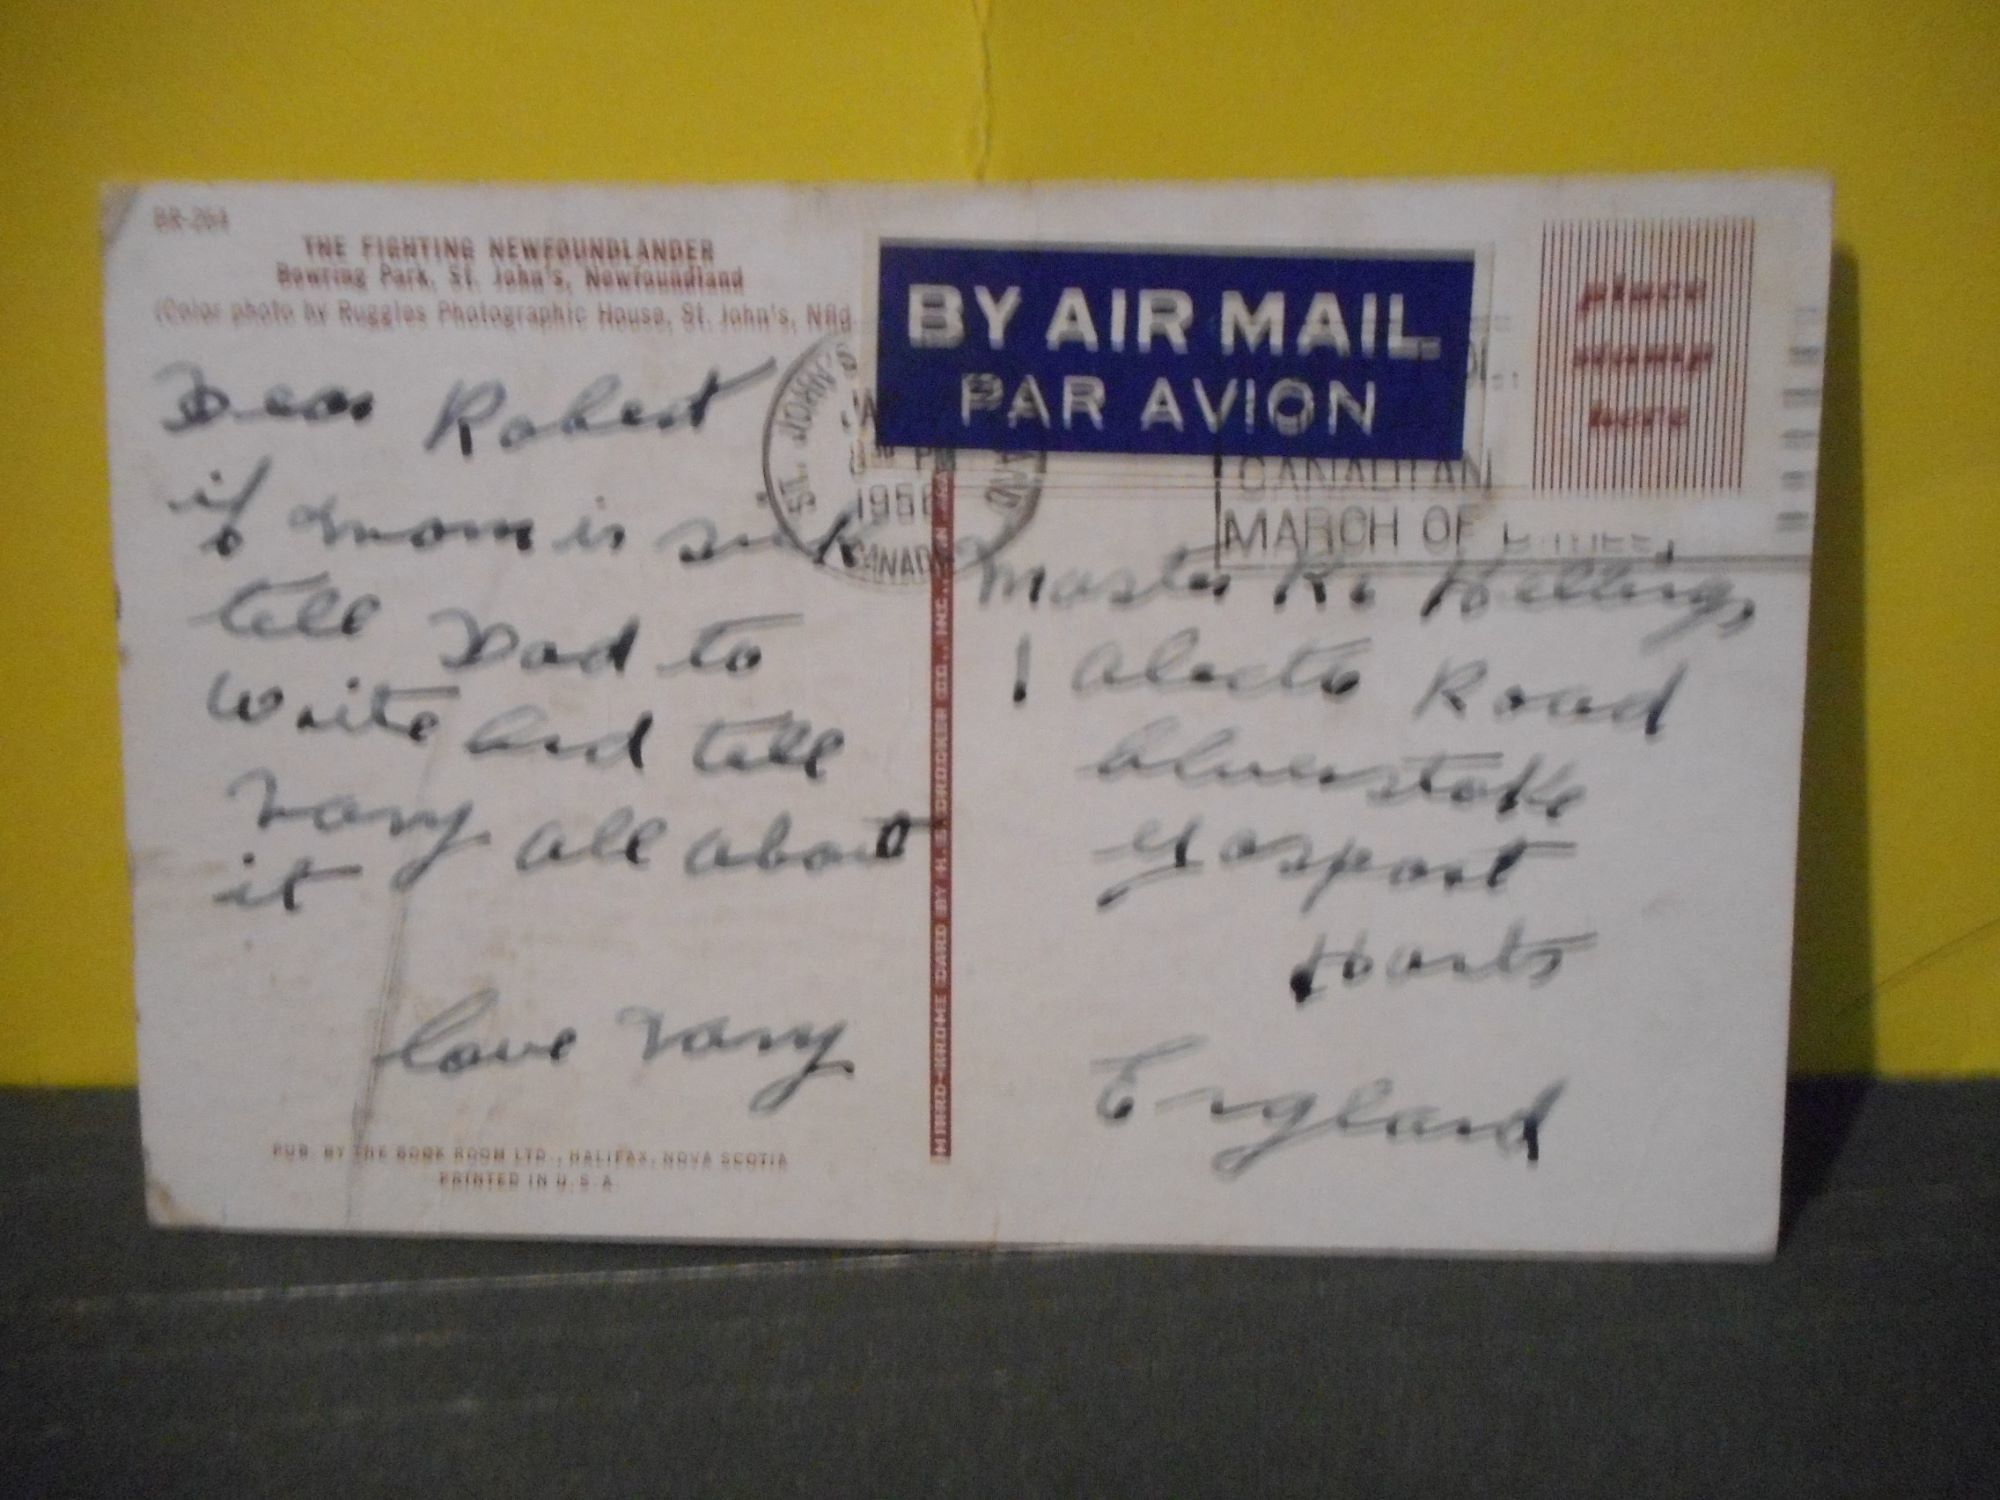 BR-264
THE FIGHTING NEWFOUNDLANDER
Bowring Park, St. John's, Newfoundland
(Color photo by Ruggles Photographic House, St. John's, Nfld
Dear Robert
if mom is sick
tell Dad to
write and tell
Nany all about
it
love Nany
PUB. BY THE BOOK ROOM LTD., HALIFAX, NOVA SCOTIA
PRINTED IN U.S.A.
BY AIR MAIL
PAR AVION
ST. JOHN'S
PM
CANADA
CANADIAN
MARCH OF DIMES
place
stamp
here
MIRRO-KROME CARD BY H.S. CROCKER CO., INC.,
Master
1 Alecto Road
Alverstoke
Gosport
Hants
England